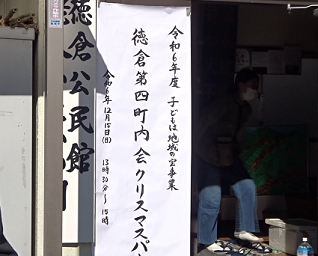 令和6年度 子どもは地域の宝事業
徳倉第四町内会クリスマスパ
令和6年12月15日(日)
13時30分~15時
徳倉公民館